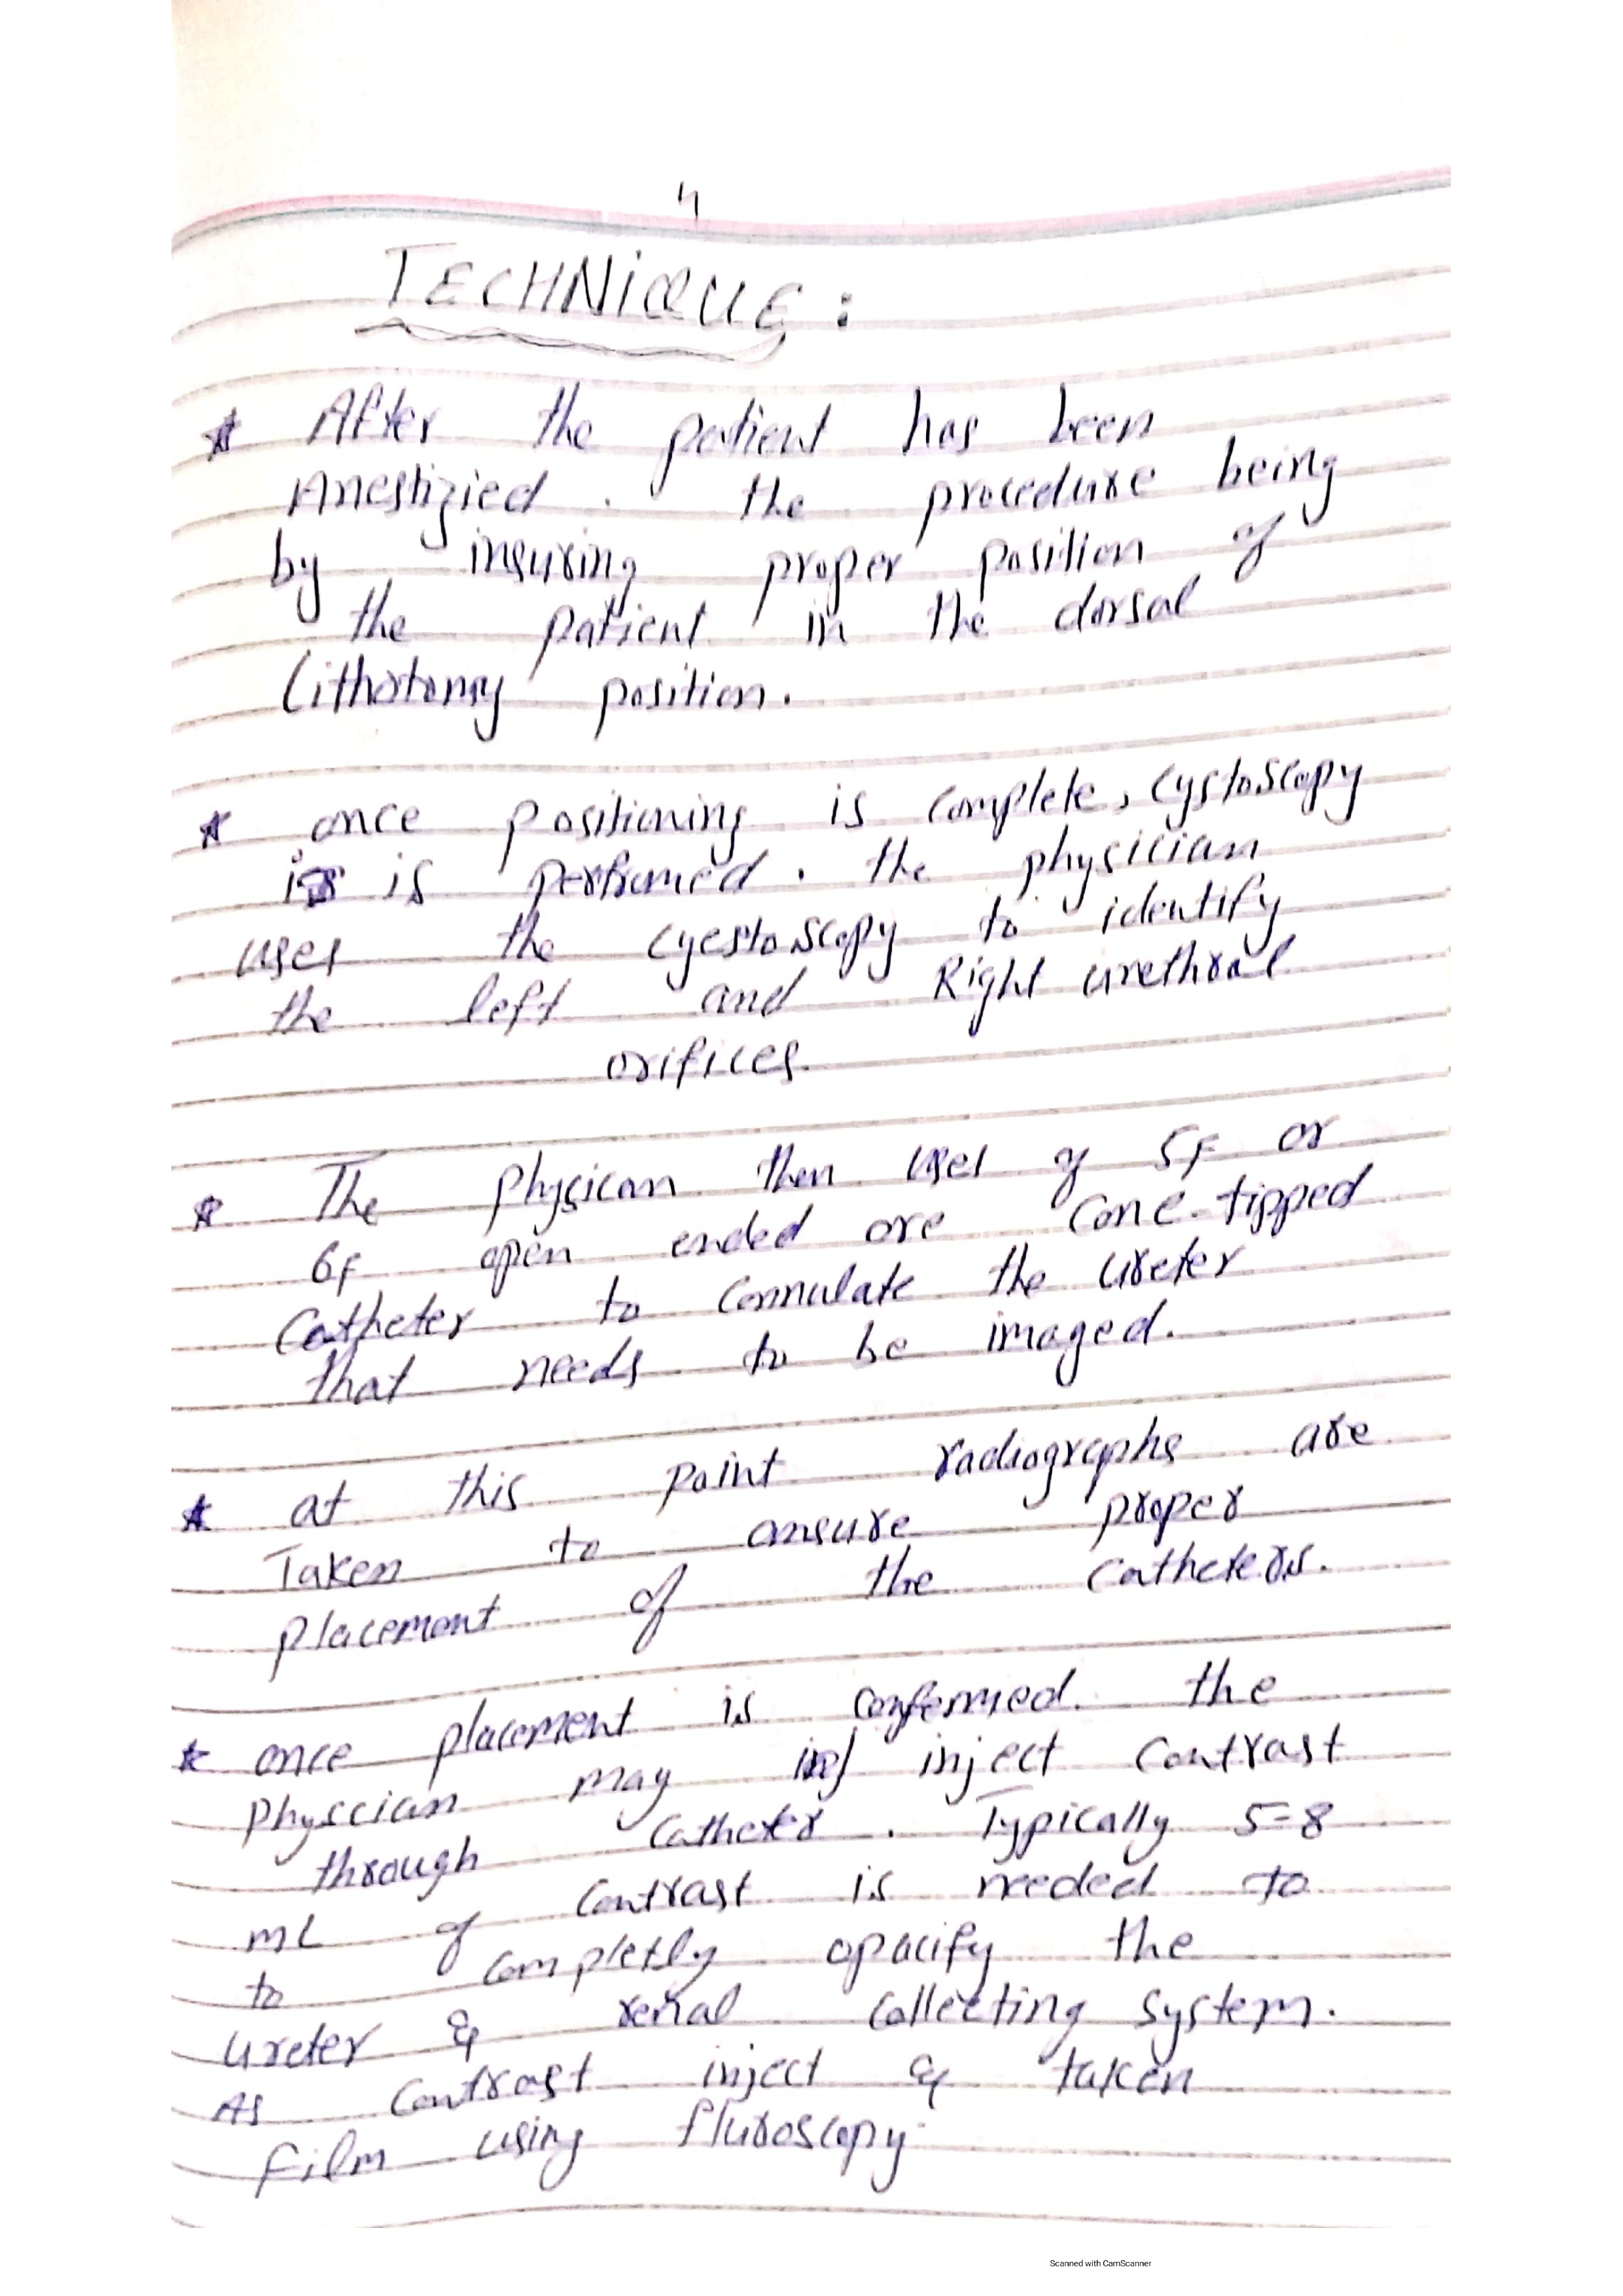 4
TECHNIQUE:
* After the patient has been
Anestizied . the procedure being
by insuring proper position of
the patient in the dorsal
Lithotomy position.
* once positioning is complete, cystoscopy
is is perfromed. the physician
uses the cyestoscopy to identify
the left and Right urethral
orifices.
* The Physican then uses of 5F or
6F open ended ore Cone-tipped
Catheter to Cannulate the ureter
that needs to be imaged.
* at this point radiographs are
Taken to ansure proper
placement of the catheters.
* once placement is confermed. the
Physcian may inj inject Contrast
through Catheter . Typically 5-8
mL of Contrast is needed to
to completly opacify the
ureter & renal Collecting System.
As Contrast inject & taken
Film using fluroscopy.
Scanned with CamScanner